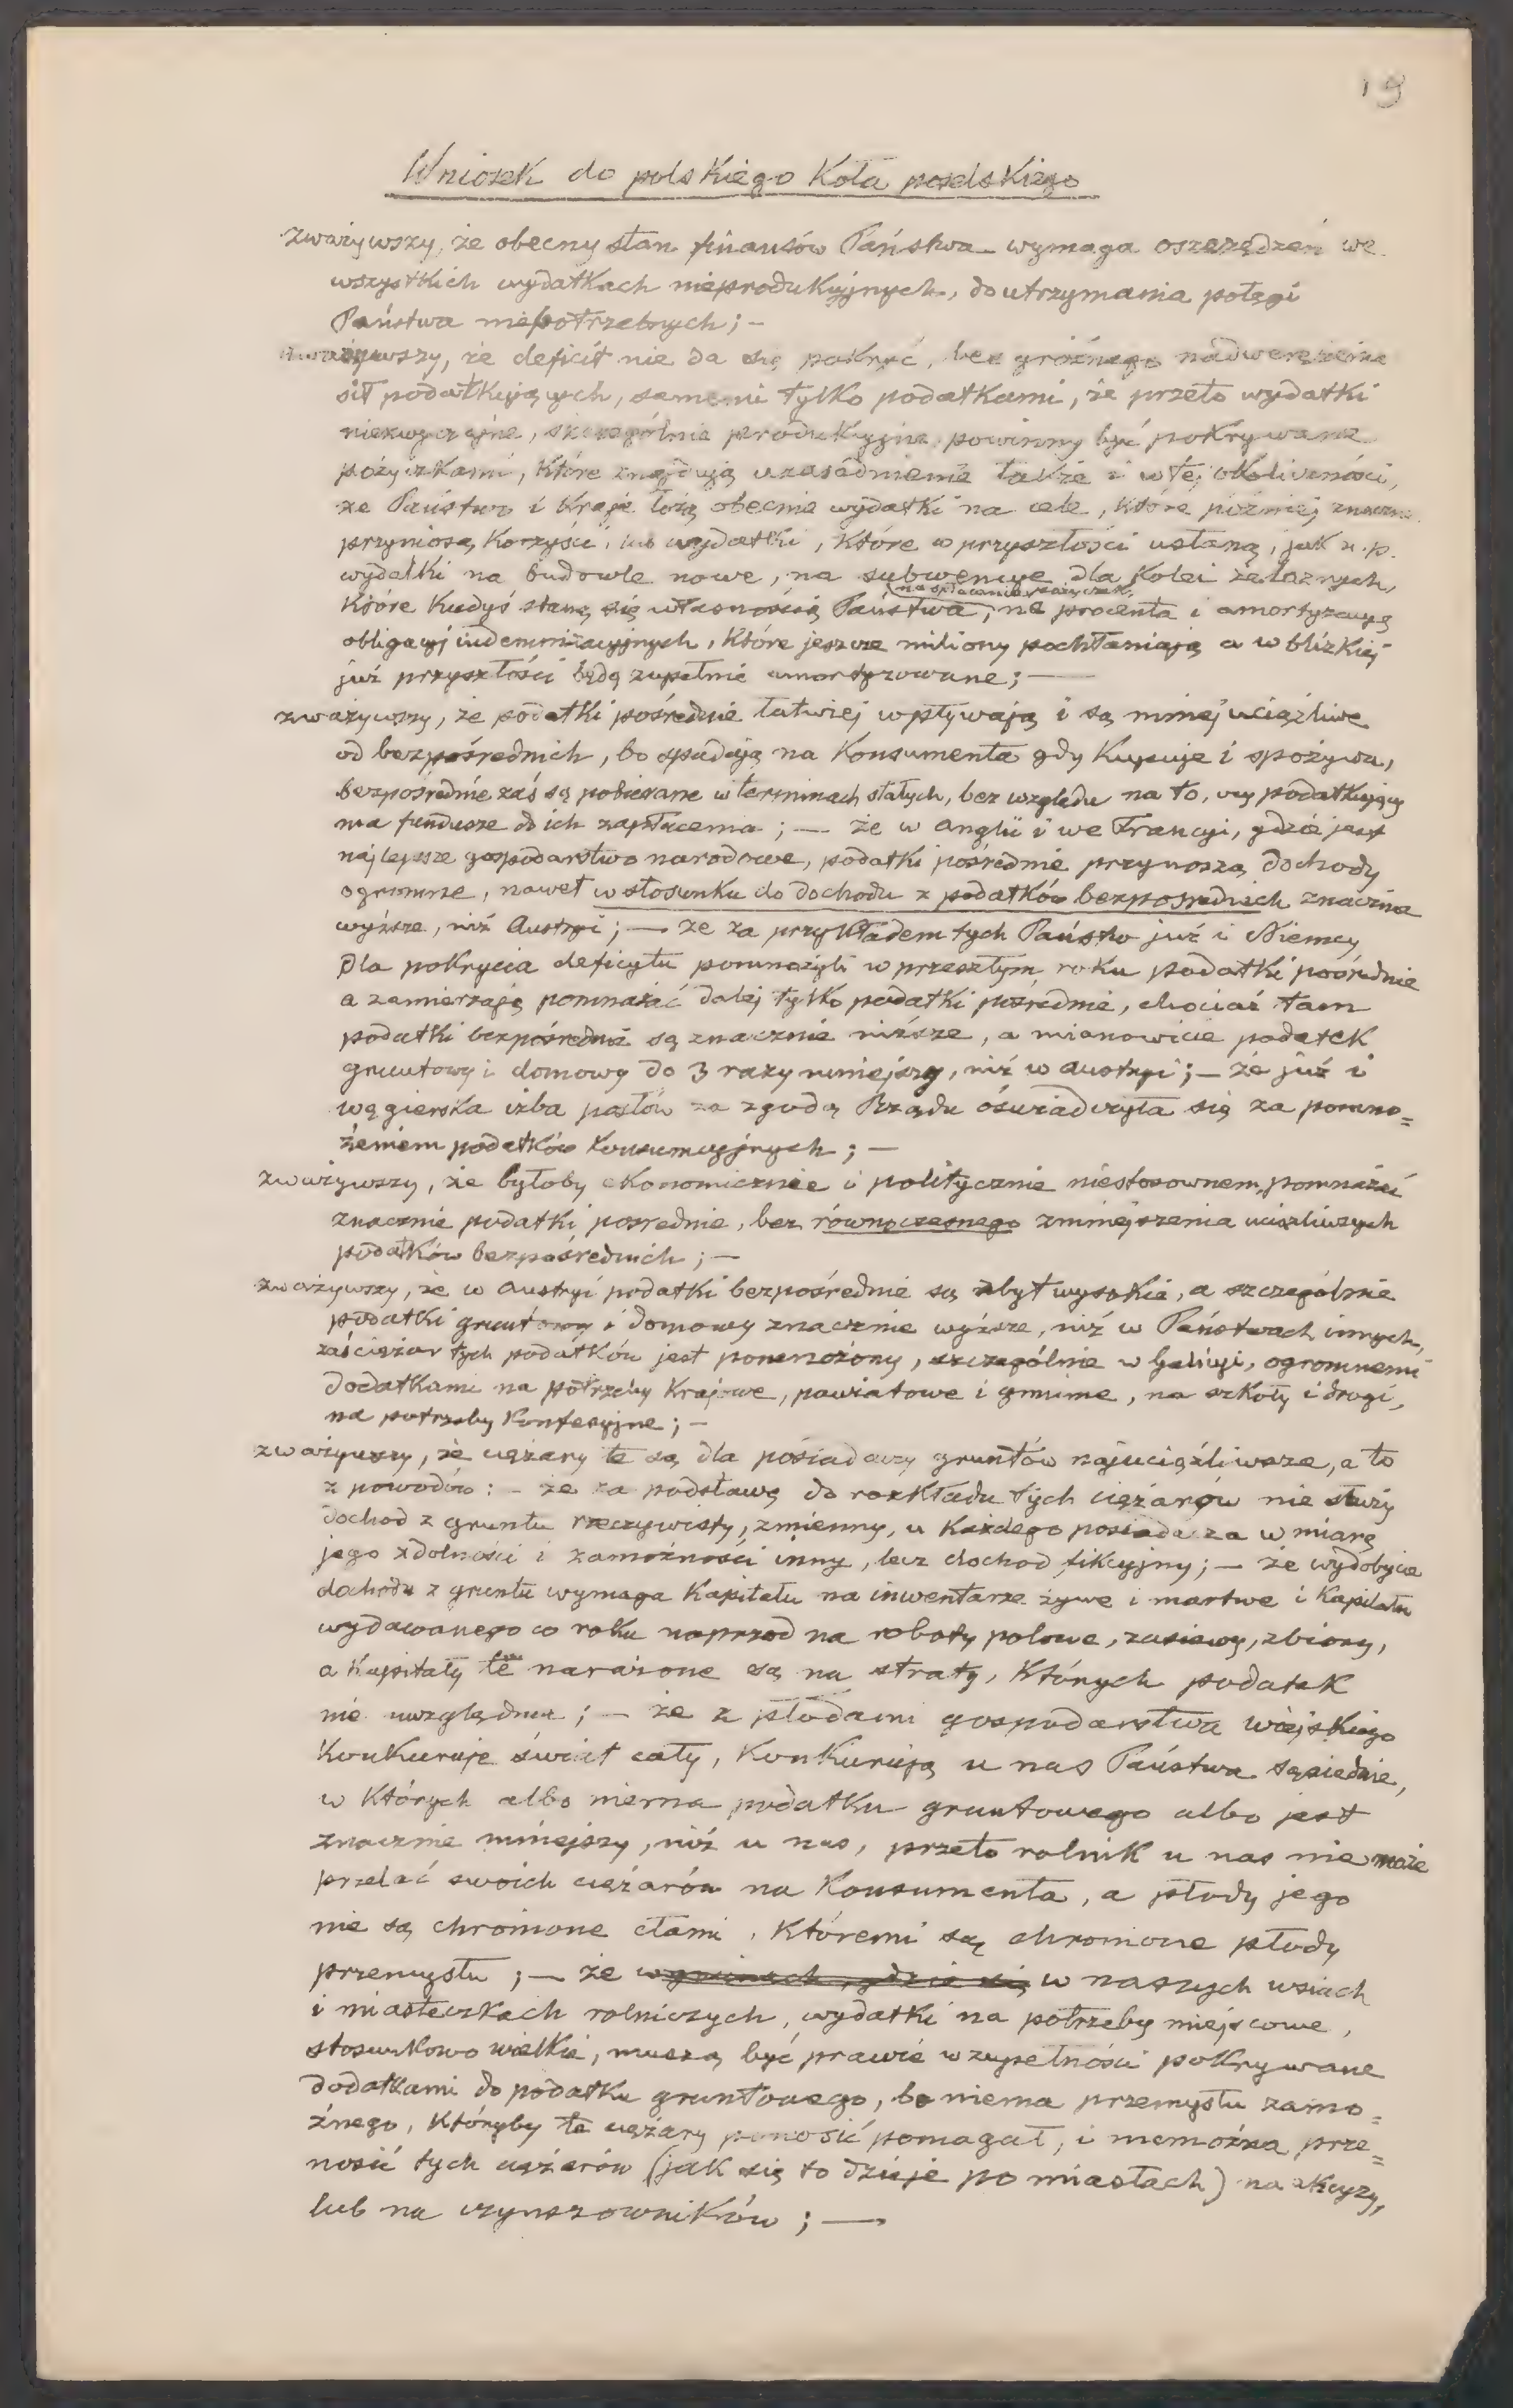 19
Wniosek do polskiego Koła poselskiego
zważywszy, że obecny stan finansów Państwa wymaga oszczędzeń we
wszystkich wydatkach nieprodukcyjnych, do utrzymania potęgi
Państwa niepotrzebnych; -
zważywszy, że deficit nie da się pokryć, bez groźnego nadwerężenia
sił podatkujących, samemi tylko podatkami, że przeto wydatki
niezwyczajne, szczególnie produkcyjne powinny być pokrywane
pożyczkami, które znajdują uzasadnienie także i w tej okoliczności,
że Państwo i Kraje łożą obecnie wydatki na cele, które później znaczne
przyniosą korzyści, lub wydatki, które w przyszłości ustaną, jak n.p.
wydatki na budowle nowe, na subwencye dla Kolei żelaznych,
na spłacenie pożyczek,
które kiedyś staną się własnością Państwa, na procenta i amortyzacyę
obligacyj indemnizacyjnych, które jeszcze miliony pochłaniają a w blizkiej
już przyszłości będą zupełnie amortyzowane; —
zważywszy, że podatki pośrednie łatwiej wpływają i są mniej uciążliwe
od bezpośrednich, bo spadają na Konsumenta gdy Kupuje i spożywa,
bezpośrednie zaś są pobierane w terminach stałych, bez względu na to, czy podatkujący
ma fundusze do ich zapłacenia; — że w Anglii i we Francyi, gdzie jest
najlepsze gospodarstwo narodowe, podatki pośrednie przynoszą dochody
ogromne, nawet w stosunku do dochodu z podatków bezpośrednich znacznie
wyższe, niż Austryi; — że za przykładem tych Państw już i Niemcy
dla pokrycia deficytu pomnożyli w przeszłym roku podatki pośrednie
a zamierzają pomnażać dalej tylko podatki pośrednie, chociaż tam
podatki bezpośrednie są znacznie niższe, a mianowicie podatek
gruntowy i domowy do 3 razy mniejszy, niż w Austryi; — że już i
węgierska izba posłów za zgodą Rządu oświadczyła się za pomno=
żeniem podatków konsumcyjnych; —
zważywszy, że byłoby ekonomicznie i politycznie niestosownem, pomnażać
znacznie podatki pośrednie, bez równoczesnego zmniejszenia uciążliwszych
podatków bezpośrednich; —
zważywszy, że w Austryi podatki bezpośrednie są zbyt wysokie, a szczególnie
podatki gruntowy i domowy znacznie wyższe, niż w Państwach innych,
zaś ciężar tych podatków jest pomnożony, szczególnie w Galicyi, ogromnemi
dodatkami na potrzeby Krajowe, powiatowe i gminne, na szkoły i drogi,
na potrzeby Konfesyjne; -
zważywszy, że ciężary te są dla posiadaczy gruntów najuciążliwsze, a to
z powodów: - że za podstawę do rozkładu tych ciężarów nie służy
dochod z gruntu rzeczywisty, zmienny, u Każdego posiadacza w miarę
jego zdolności i zamożności inny, lecz dochod fikcyjny; — że wydobycie
dochodu z gruntu wymaga Kapitału na inwentarze żywe i martwe i Kapitału
wydawanego co roku naprzod na roboty polowe, zasiewy, zbiory,
a Kapitały te narażone są na straty, Których podatek
nie uwzględnia; — że z płodami gospodarstwa wiejskiego
Konkuruje świat cały, Konkurują u nas Państwa sąsiednie,
w Których albo niema podatku gruntowego albo jest
znacznie mniejszy, niż u nas, przeto rolnik u nas nie może
przelać swoich ciężarów na Konsumenta, a płody jego
nie są chronione cłami, Któremi są chronione płody
przemysłu; — że w gminach, gdzie się w naszych wsiach
i miasteczkach rolniczych, wydatki na potrzeby miejscowe,
stosunkowo wielkie, muszą być prawie w zupełności pokrywane
dodatkami do podatku gruntowego, bo niema przemysłu zamo=
żnego, Któryby te ciężary ponosić pomagał, i niemożna prze=
nosić tych ciężarów (jak się to dzieje po miastach) na akcyzy,
lub na czynszowników; —